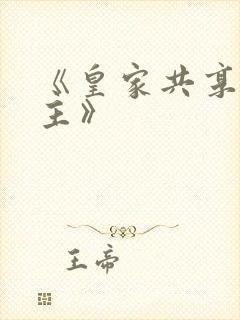 《皇家共享
主》
王帝